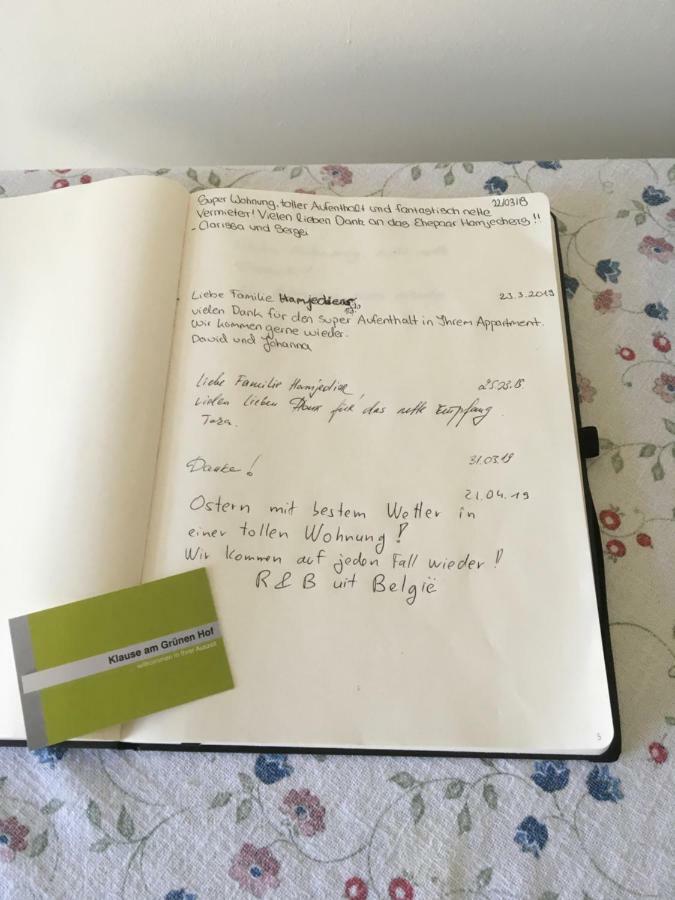 22/03/19
Super Wohnung, toller Aufenthalt und fantastisch nette
Vermieter! Vielen lieben Dank an das Ehepaar Hamjediers!!
- Clarissa und Sergej
23.3.2019
Liebe Familie Hamjediers,
vielen Dank für den super Aufenthalt in Ihrem Appartment.
Wir kommen gerne wieder.
David und Johanna
Liebe Familie
vielen lieben für das nette Empfang.
Danke!
31.03.19
21.04.19
Ostern mit bestem Wetter in
einer tollen Wohnung!
Wir kommen auf jeden Fall wieder!
R & B uit België
Klause am Grünen Hof
willkommen in Ihrer Auszeit
5